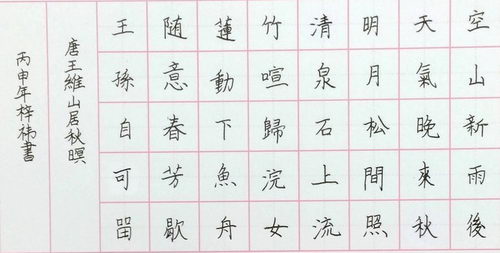 空山新雨後
天氣晚來秋
明月松間照
清泉石上流
竹喧歸浣女
蓮動下魚舟
随意春芳歇
王孫自可留
唐王維山居秋暝
丙申年梓祎書